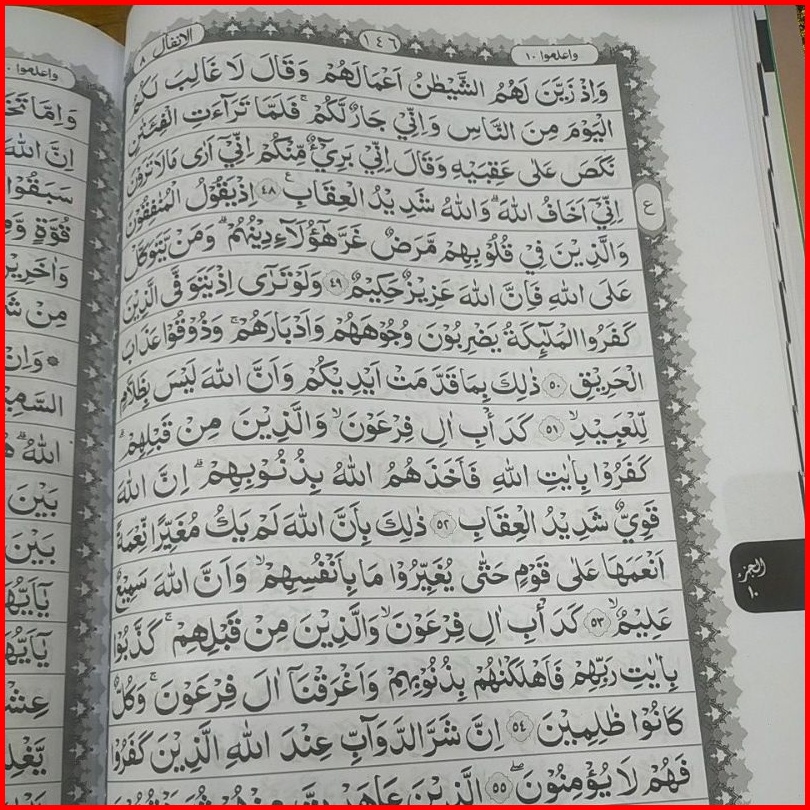 الانفال ٨
١٤٦
واعلموا ١٠
وَاِذْ زَيَّنَ لَهُمُ الشَّيْطٰنُ اَعْمَالَهُمْ وَقَالَ لَا غَالِبَ لَكُمُ
الْيَوْمَ مِنَ النَّاسِ وَاِنِّيْ جَارٌ لَّكُمْۚ فَلَمَّا تَرَاۤءَتِ الْفِئَتٰنِ
نَكَصَ عَلٰى عَقِبَيْهِ وَقَالَ اِنِّيْ بَرِيْۤءٌ مِّنْكُمْ اِنِّيْٓ اَرٰى مَا لَا تَرَوْنَ
اِنِّيْٓ اَخَافُ اللّٰهَ ۗوَاللّٰهُ شَدِيْدُ الْعِقَابِ ࣖ ٤٨ اِذْ يَقُوْلُ الْمُنٰفِقُوْنَ
وَالَّذِيْنَ فِيْ قُلُوْبِهِمْ مَّرَضٌ غَرَّ هٰٓؤُلَاۤءِ دِيْنُهُمْۗ وَمَنْ يَّتَوَكَّلْ
عَلَى اللّٰهِ فَاِنَّ اللّٰهَ عَزِيْزٌ حَكِيْمٌ ٤٩ وَلَوْ تَرٰٓى اِذْ يَتَوَفَّى الَّذِيْنَ
كَفَرُوا الْمَلٰۤىِٕكَةُ يَضْرِبُوْنَ وُجُوْهَهُمْ وَاَدْبَارَهُمْۚ وَذُوْقُوْا عَذَابَ
الْحَرِيْقِ ٥٠ ذٰلِكَ بِمَا قَدَّمَتْ اَيْدِيْكُمْ وَاَنَّ اللّٰهَ لَيْسَ بِظَلَّامٍ
لِّلْعَبِيْدِۙ ٥١ كَدَأْبِ اٰلِ فِرْعَوْنَۙ وَالَّذِيْنَ مِنْ قَبْلِهِمْۗ
كَفَرُوْا بِاٰيٰتِ اللّٰهِ فَاَخَذَهُمُ اللّٰهُ بِذُنُوْبِهِمْۗ اِنَّ اللّٰهَ
قَوِيٌّ شَدِيْدُ الْعِقَابِ ٥٢ ذٰلِكَ بِاَنَّ اللّٰهَ لَمْ يَكُ مُغَيِّرًا نِّعْمَةً
اَنْعَمَهَا عَلٰى قَوْمٍ حَتّٰى يُغَيِّرُوْا مَا بِاَنْفُسِهِمْۙ وَاَنَّ اللّٰهَ سَمِيْعٌ
عَلِيْمٌۙ ٥٣ كَدَأْبِ اٰلِ فِرْعَوْنَۙ وَالَّذِيْنَ مِنْ قَبْلِهِمْۚ كَذَّبُوْا
بِاٰيٰتِ رَبِّهِمْ فَاَهْلَكْنٰهُمْ بِذُنُوْبِهِمْ وَاَغْرَقْنَآ اٰلَ فِرْعَوْنَۚ وَكُلٌّ
كَانُوْا ظٰلِمِيْنَ ٥٤ اِنَّ شَرَّ الدَّوَاۤبِّ عِنْدَ اللّٰهِ الَّذِيْنَ كَفَرُوْا
فَهُمْ لَا يُؤْمِنُوْنَۖ ٥٥ الَّذِيْنَ عَاهَدْتَّ مِنْهُمْ ثُمَّ يَنْقُضُوْنَ
ع
الجزء
١٠
واعلموا
وَاِمَّا
اِنَّ اللّٰهَ
سَبَقُوْا
قُوَّةٍ
وَاٰخَرِيْنَ
مِنْ
۞ وَاِنْ
اللّٰهُ
بَيْنَ
بَيْنَ
يٰٓاَيُّهَا
يٰٓاَيُّهَا